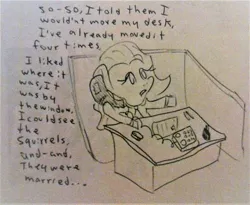 so-so, I told them I
Would'nt move my desk,
I've already moved it
four times.
I liked
where it
was, I t
was by
thewindow.
I could see
the
Squirrels,
and-and,
They were
married...